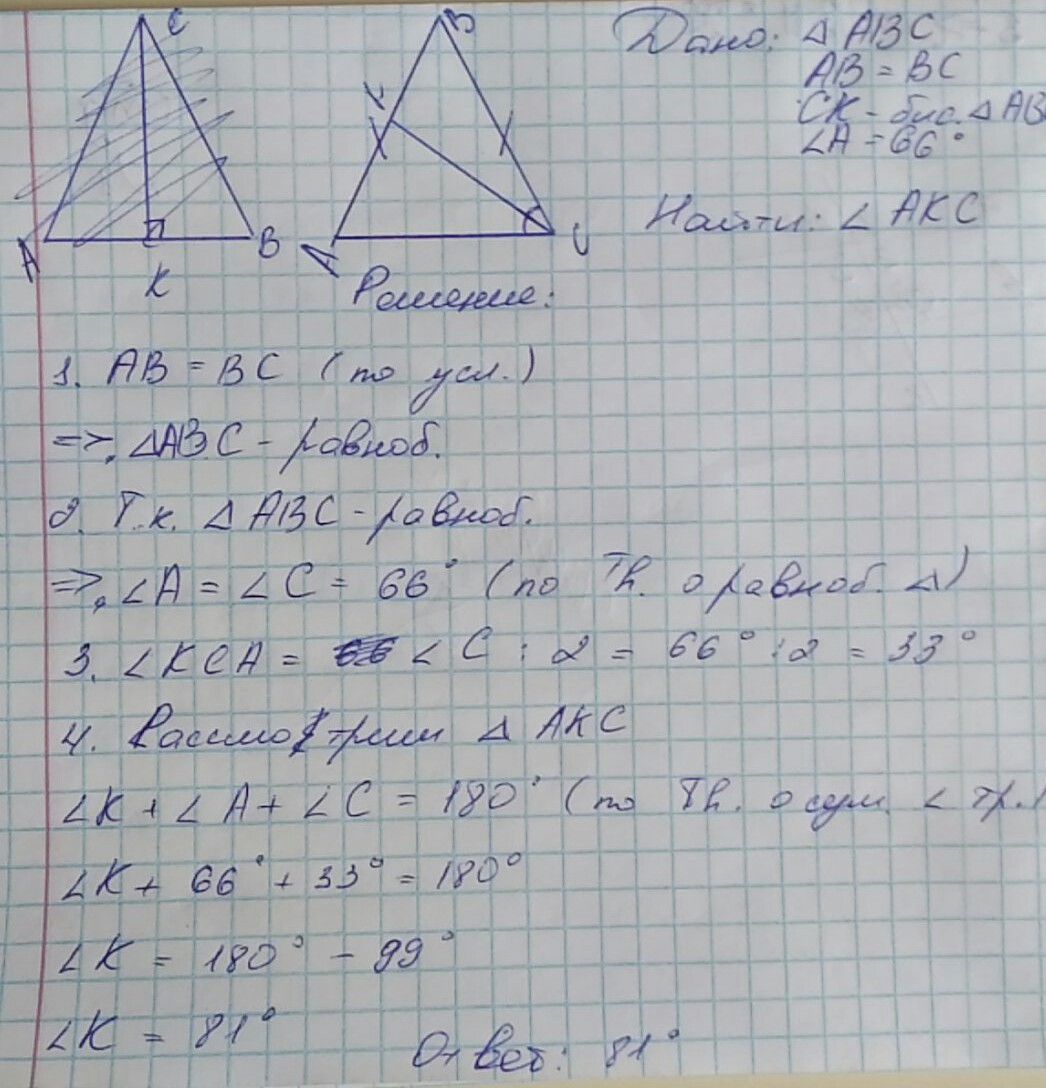 C
A
B
K
B
K
A
C
Дано: △ ABC
AB = BC
CK - бис. △ AB
∠A = 66°
Найти: ∠ AKC
Решение:
1. AB = BC (по усл.)
=> △ABC - равноб.
2. Т.к. △ ABC - равноб.
=> ∠A = ∠C = 66° (по Th. о равноб. △)
3. ∠KCA = ∠C : 2 = 66° : 2 = 33°
4. Рассмотрим △ AKC
∠K + ∠A + ∠C = 180° (по Th. о сум. ∠ тр.)
∠K + 66° + 33° = 180°
∠K = 180° - 99°
∠K = 81°
Ответ: 81°